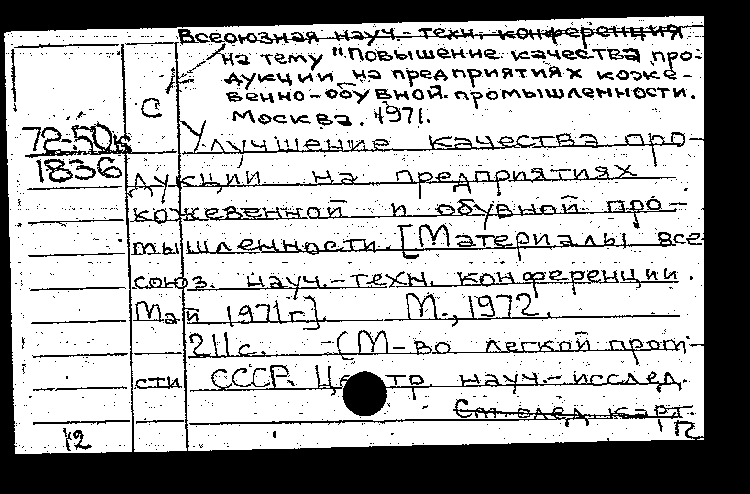 Всесоюзная науч.-техн. конференция
на тему "Повышение качества про-
дукции на предприятиях коже-
венно-обувной промышленности.
Москва. 1971.
С
72-50к
1836
Улучшение качества про-
дукции на предприятиях
кожевенной и обувной про-
мышленности. [Материалы все-
союз. науч.-техн. конференции.
Май 1971 г.]. М., 1972.
211 с. (М-во легкой пром-
сти СССР. Центр науч.-исслед.
См. след. карт.
12
12